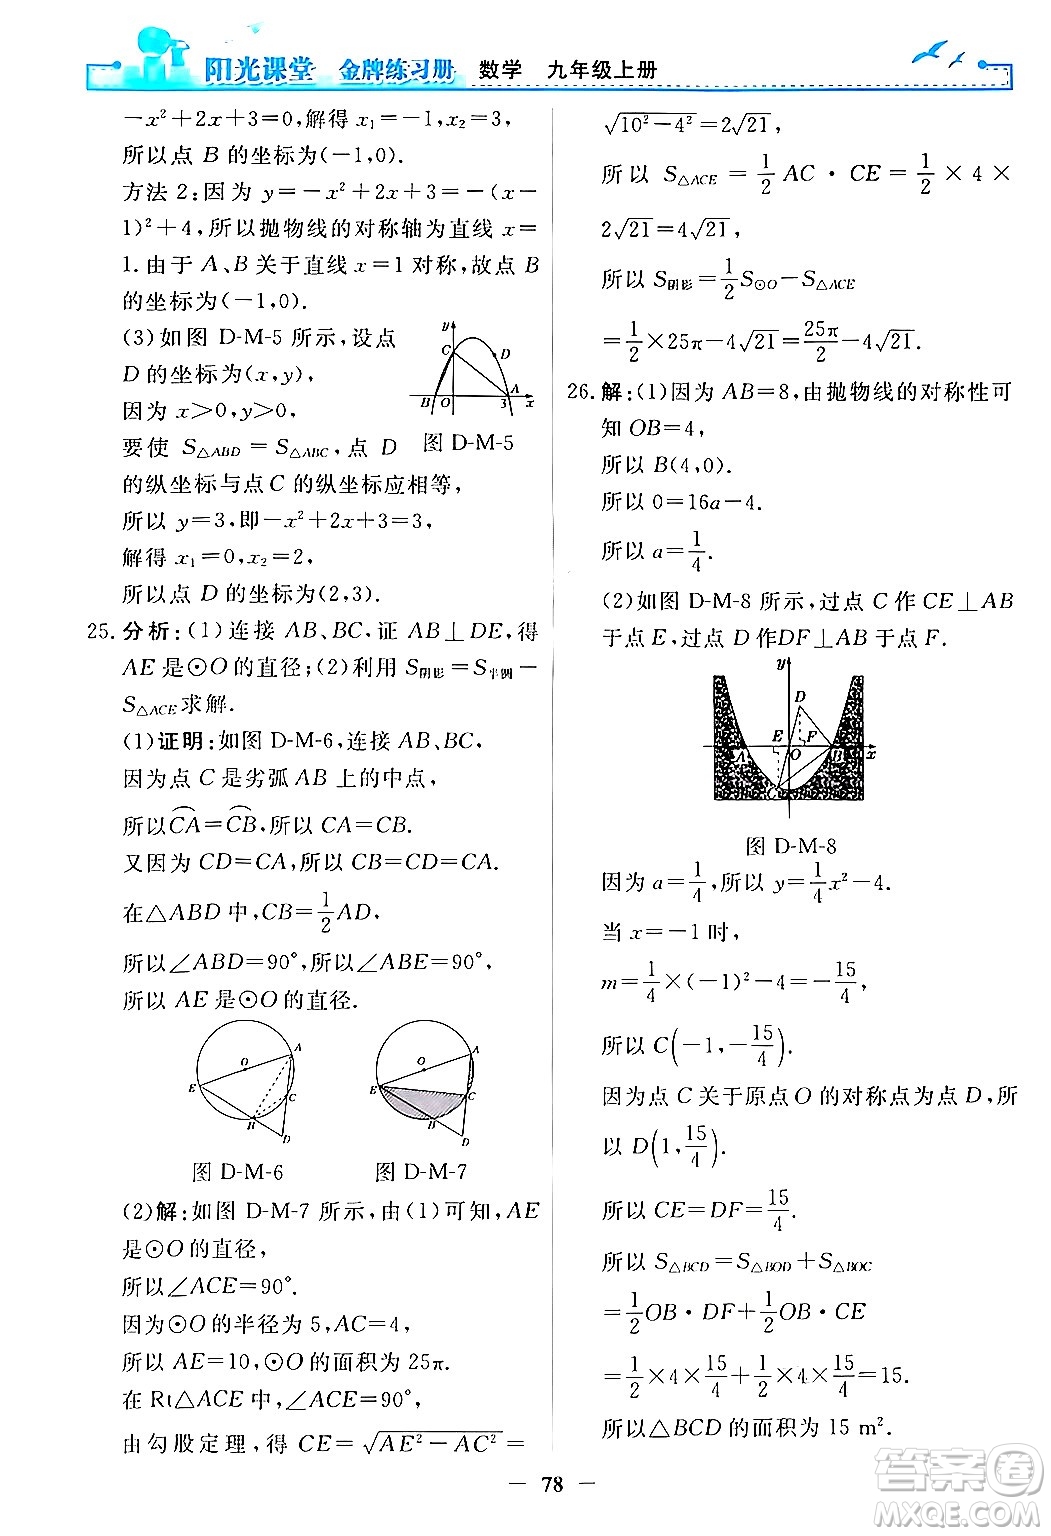 阳光课堂 金牌练习册 数学 九年级上册
－x²＋2x＋3＝0,解得 x₁＝－1,x₂＝3,
所以点 B 的坐标为(－1,0).
方法 2:因为 y＝－x²＋2x＋3＝－(x－
1)²＋4,所以抛物线的对称轴为直线 x＝
1.由于 A、B 关于直线 x＝1 对称,故点 B
的坐标为(－1,0).
(3)如图 D-M-5 所示,设点
D 的坐标为(x,y),
因为 x＞0,y＞0,
要使 S△ABD＝S△ABC,点 D
的纵坐标与点 C 的纵坐标应相等,
y
C
D
B O 3 A x
图 D-M-5
所以 y＝3,即－x²＋2x＋3＝3,
解得 x₁＝0,x₂＝2,
所以点 D 的坐标为(2,3).
25. 分析:(1)连接 AB、BC,证 AB⊥DE,得
AE 是⊙O 的直径;(2)利用 S阴影＝S半圆－
S△ACE求解.
(1)证明:如图 D-M-6,连接 AB、BC,
因为点 C 是劣弧 AB 上的中点,
所以⌒CA＝⌒CB,所以 CA＝CB.
又因为 CD＝CA,所以 CB＝CD＝CA.
在△ABD 中,CB＝1/2 AD,
所以∠ABD＝90°,所以∠ABE＝90°,
所以 AE 是⊙O 的直径.
O A E C B D
图 D-M-6
O A E C B D
图 D-M-7
(2)解:如图 D-M-7 所示,由(1)可知,AE
是⊙O 的直径,
所以∠ACE＝90°.
因为⊙O 的半径为 5,AC＝4,
所以 AE＝10,⊙O 的面积为 25π.
在 Rt△ACE 中,∠ACE＝90°,
由勾股定理,得 CE＝√(AE²－AC²)＝
√(10²－4²)＝2√21,
所以 S△ACE＝1/2 AC·CE＝1/2×4×
2√21＝4√21,
所以 S阴影＝1/2 S⊙O－S△ACE
＝1/2×25π－4√21＝25π/2－4√21.
26. 解:(1)因为 AB＝8,由抛物线的对称性可
知 OB＝4,
所以 B(4,0).
所以 0＝16a－4.
所以 a＝1/4.
(2)如图 D-M-8 所示,过点 C 作 CE⊥AB
于点 E,过点 D 作DF⊥AB 于点 F.
y
D
E F
A O B x
C
图 D-M-8
因为 a＝1/4,所以 y＝1/4 x²－4.
当 x＝－1 时,
m＝1/4×(－1)²－4＝－15/4,
所以 C(－1,－15/4).
因为点 C 关于原点 O 的对称点为点 D,所
以 D(1,15/4).
所以 CE＝DF＝15/4.
所以 S△BCD＝S△BOD＋S△BOC
＝1/2 OB·DF＋1/2 OB·CE
＝1/2×4×15/4＋1/2×4×15/4＝15.
所以△BCD 的面积为 15 m².
— 78 —
答案圈
MXQE.COM